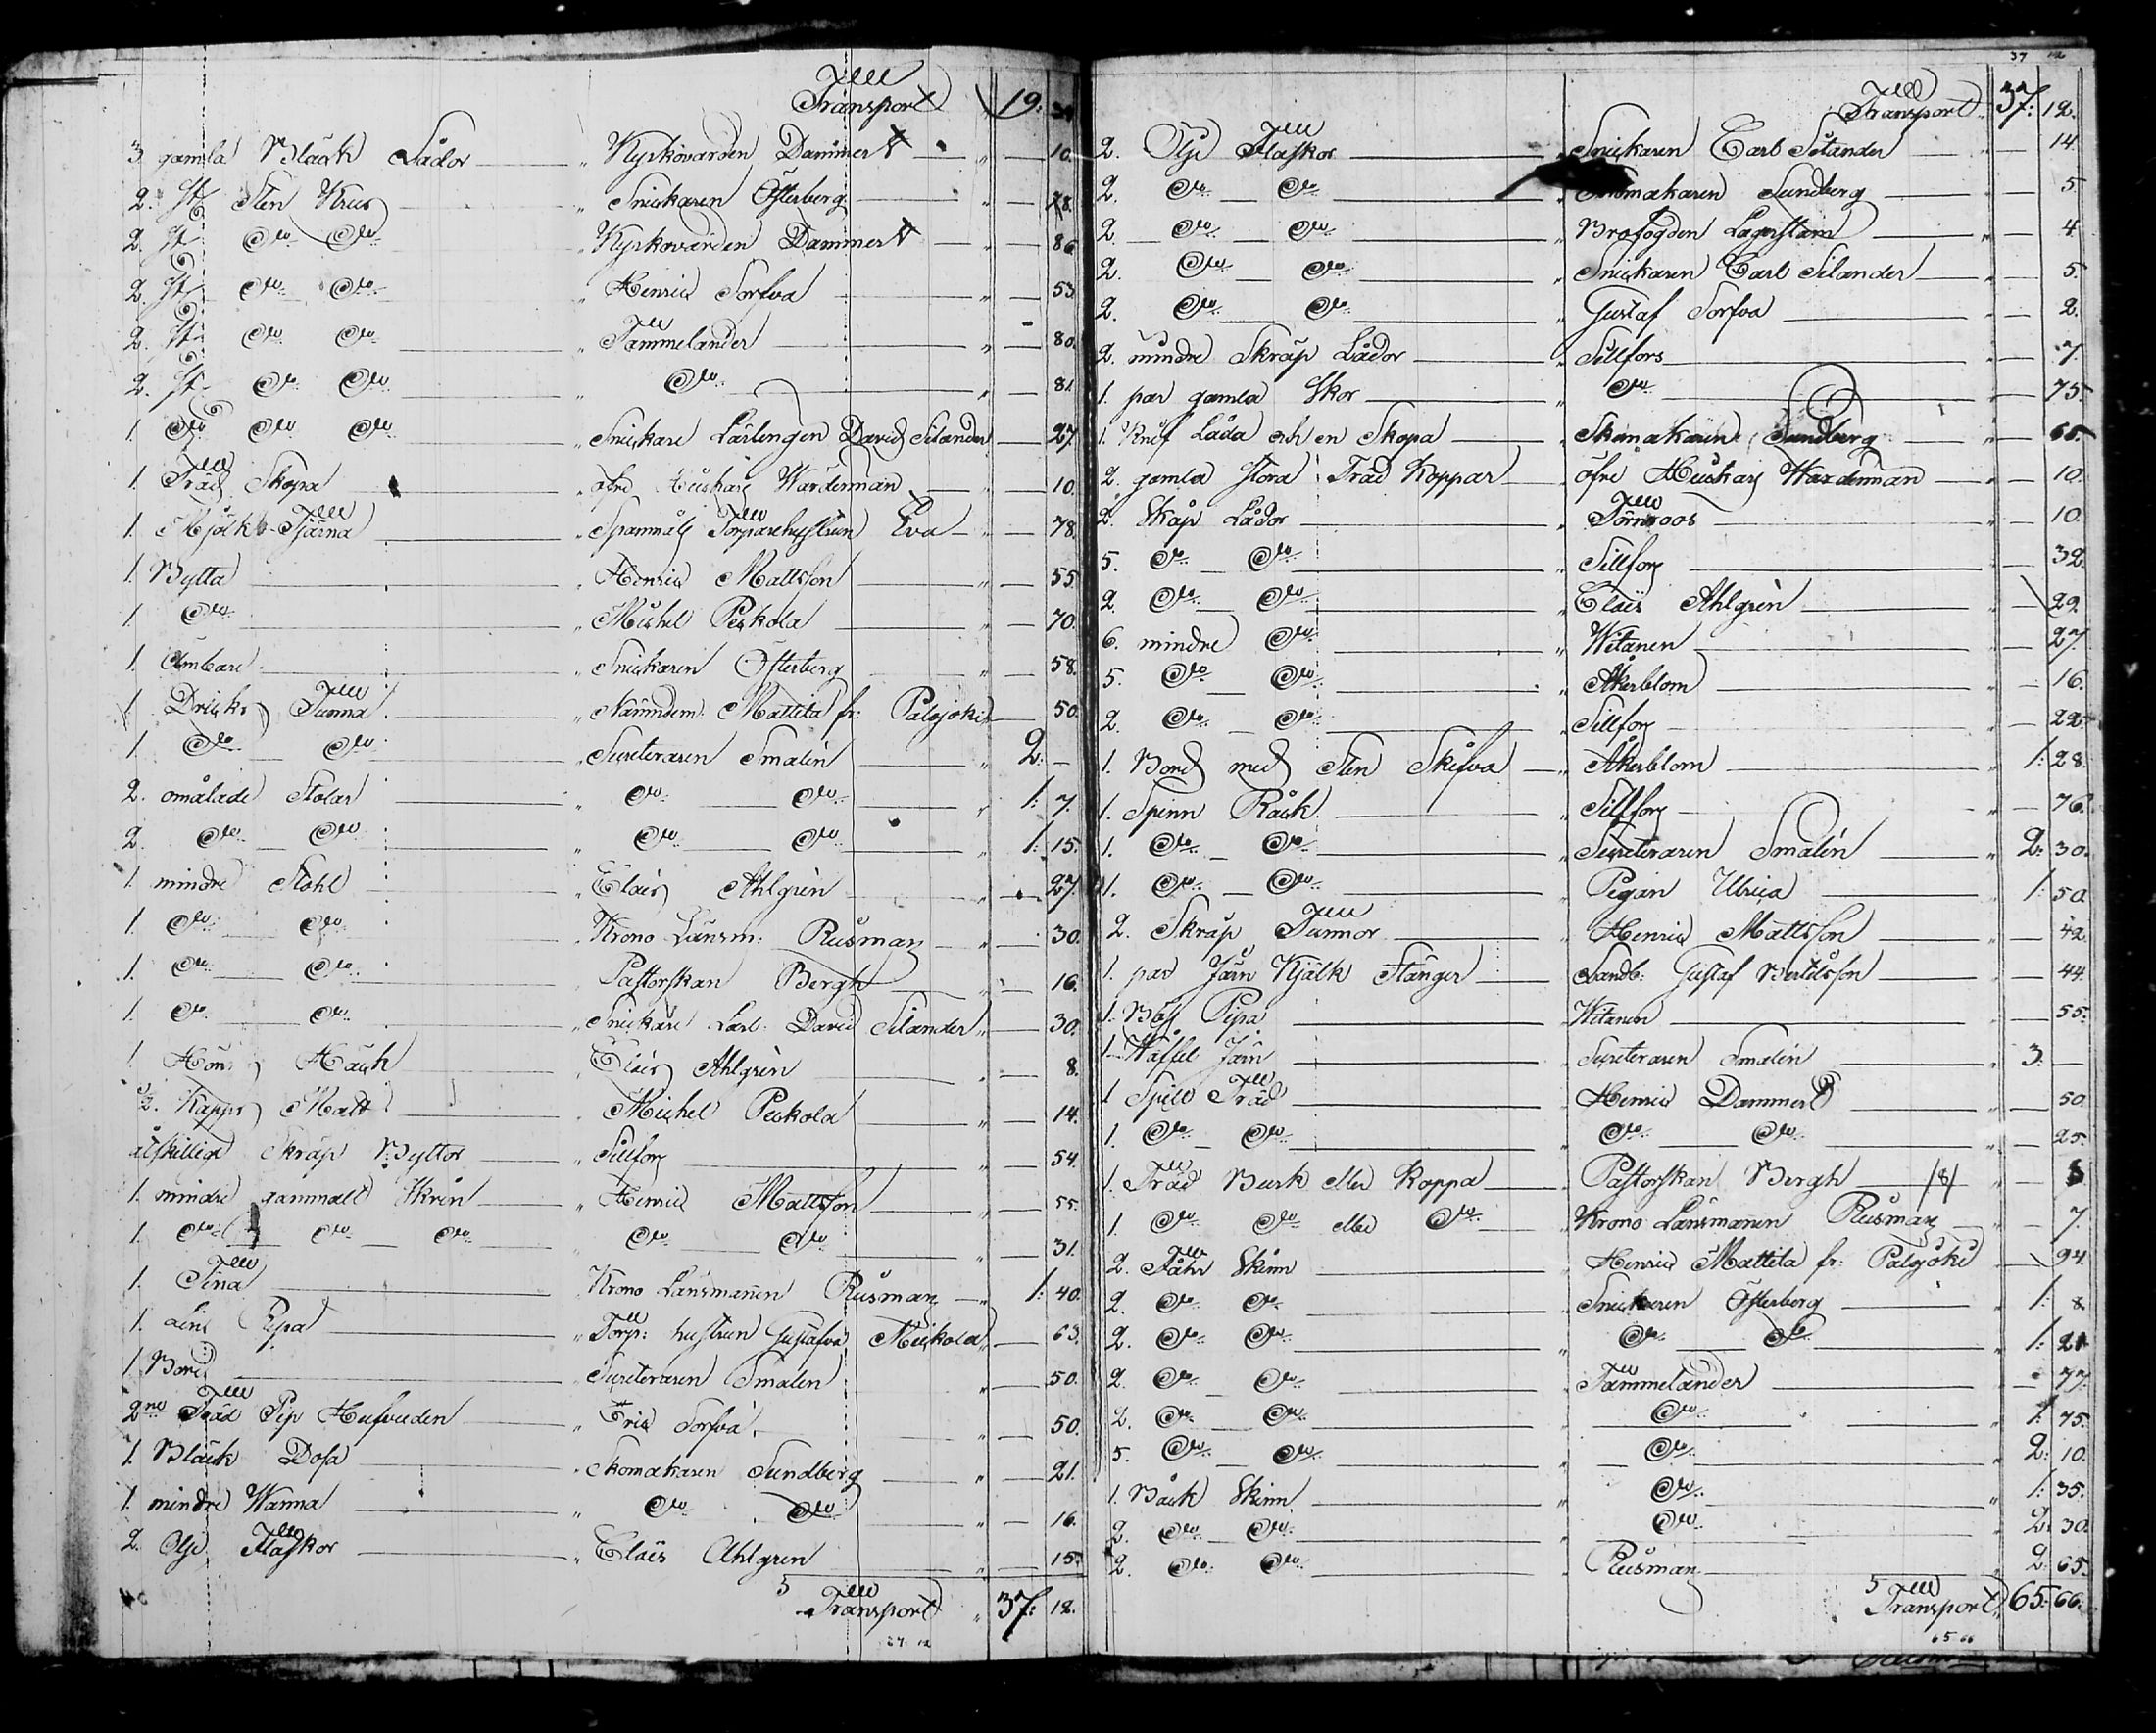 Transport 19: 34
3 gamla Bläck Lådor Kyrkovärden Dammert 10.
2. st. Sten Krus Snickaren Österberg 78.
2. st. Dto Dto Kyrkovärden Dammert 86
2. st. Dto Dto Henric Torfva 53.
2. st. Dto Dto Tammelander 80.
2. st. Dto Dto Dto 81.
1. Dto Dto Dto Snickare Lärlingen David Silander 27
1. Träd Skopa öfre Huskarl Wärderman 10.
1. Mjölk Tjärna Spannmåls Torparehustrun Eva 78.
1. Bytta Henric Mattsson 55
1 Dto Michel Peskola 70.
1. Ämbare Snickaren Österberg 58.
1 Dricks Tunna Nämndem: Mattila fr: Palojoki 50.
1. Dto Dto Sucreteraren Smalèn 2. —
2. omålade Stolar Dto Dto 1: 7.
2. Dto Dto Dto Dto 1: 15.
1. mindre Stohl Claës Ahlgrèn 27.
1. Dto Dto Krono Länsm: Rusman 30.
1. Dto Dto Pastorskan Bergh 16.
1. Dto Dto Snickare Lärl: David Silander 30.
1. Höns Häck Claës Ahlgrèn 8.
1/2. Kappe Malt Michel Peskola 14.
åtskillige Skräp Byttor Sillfors 54.
1. mindre gammalt Skrin Henric Mattsson 55.
1. Dto Dto Dto Dto Dto 31.
1. Tina Krono Länsmannen Rusman 1: 40.
1. Pipa Torp: hustrun Gustafva Mickola 63.
1. Bord Sucreteraren Smalèn 50.
2ne Träd Pip Hufvuden Eric Torfva 50.
1. Bläck Dosa Skomakaren Sundberg 21.
1. mindre Wanna Dto Dto 16.
2. Olje Flaskor Claës Ahlgren 15.
Transport 37: 12.
37 12
37 12
Transport 37: 12.
2. Olje Flaskor Snickaren Carl Silander 14.
2. Dto Dto Skomakaren Sundberg 5.
2. Dto Dto Brofogden Lagerstam 4.
2. Dto Dto Snickaren Carl Silander 5.
2. Dto Dto Gustaf Torfva 2.
2. mindre Skräp Lådor Sillfors 7.
1. par gamla Skor Dto 75.
1. Knif Låda och en Skopa Skomakaren Sundberg 65.
2. gamla stora Träd Koppar öfre Huskarl Warderman 10.
2. Skåp Lådor Törnroos 10.
5. Dto Dto Sillfors 32.
2. Dto Dto Claës Ahlgrèn 29.
6. mindre Dto Witanen 27.
5. Dto Dto Åkerblom 16.
2. Dto Dto Sillfors 22.
1. Bord med Sten Skifva Åkerblom 1: 28.
1. Spinn Råck Sillfors 76.
1. Dto Dto Sucreteraren Smalèn 2: 30.
1. Dto Dto Pigan Ulrica 1: 50.
2. Skräp Tunnor Henric Mattsson 42.
1. par Järn Kjälk Stänger Landb: Gustaf Bertilsson 44.
1. Pipa Witanen 55.
1. Wåffel Järn Sucreteraren Smalèn 3. —
1 Spill Träd Henric Dammert 50.
1. Dto Dto Dto Dto 25.
1. Träd Burk eller Koppa Pastorskan Bergh /8/ 8
1. Dto Dto eller Dto Krono Länsmannen Rusman 7.
2. Fåhr Skinn Henric Mattila fr: Palojoki 94.
2. Dto Dto Snickaren Österberg 1: 8.
2. Dto Dto Dto Dto 1: 21
2. Dto Dto Tammelander 77.
2. Dto Dto Dto 1: 75.
5. Dto Dto Dto 2: 10.
1. Båck Skinn Dto 1: 35.
2. Dto Dto Dto 2: 30.
2. Dto Dto Rusman 2: 65.
Transport 65: 66.
65 66